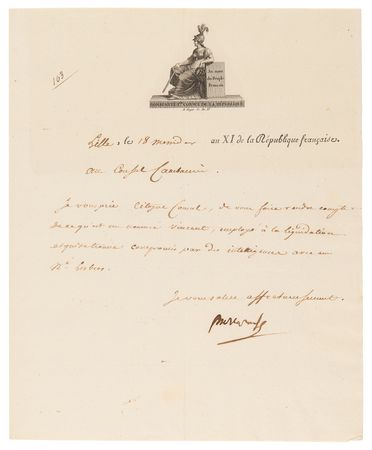 163
Au nom
du Peuple
Français
BONAPARTE 1er CONSUL DE LA RÉPUBLIQUE
Lille, le 18 messidor an XI de la République française.
au Consul Cambacérès
Je vous prie Citoyen Consul, de vous faire rendre compte
de ce qu'est un nommé Vincent, employé à la liquidation
compromis par des intelligences avec un
Je vous salue affectueusement.